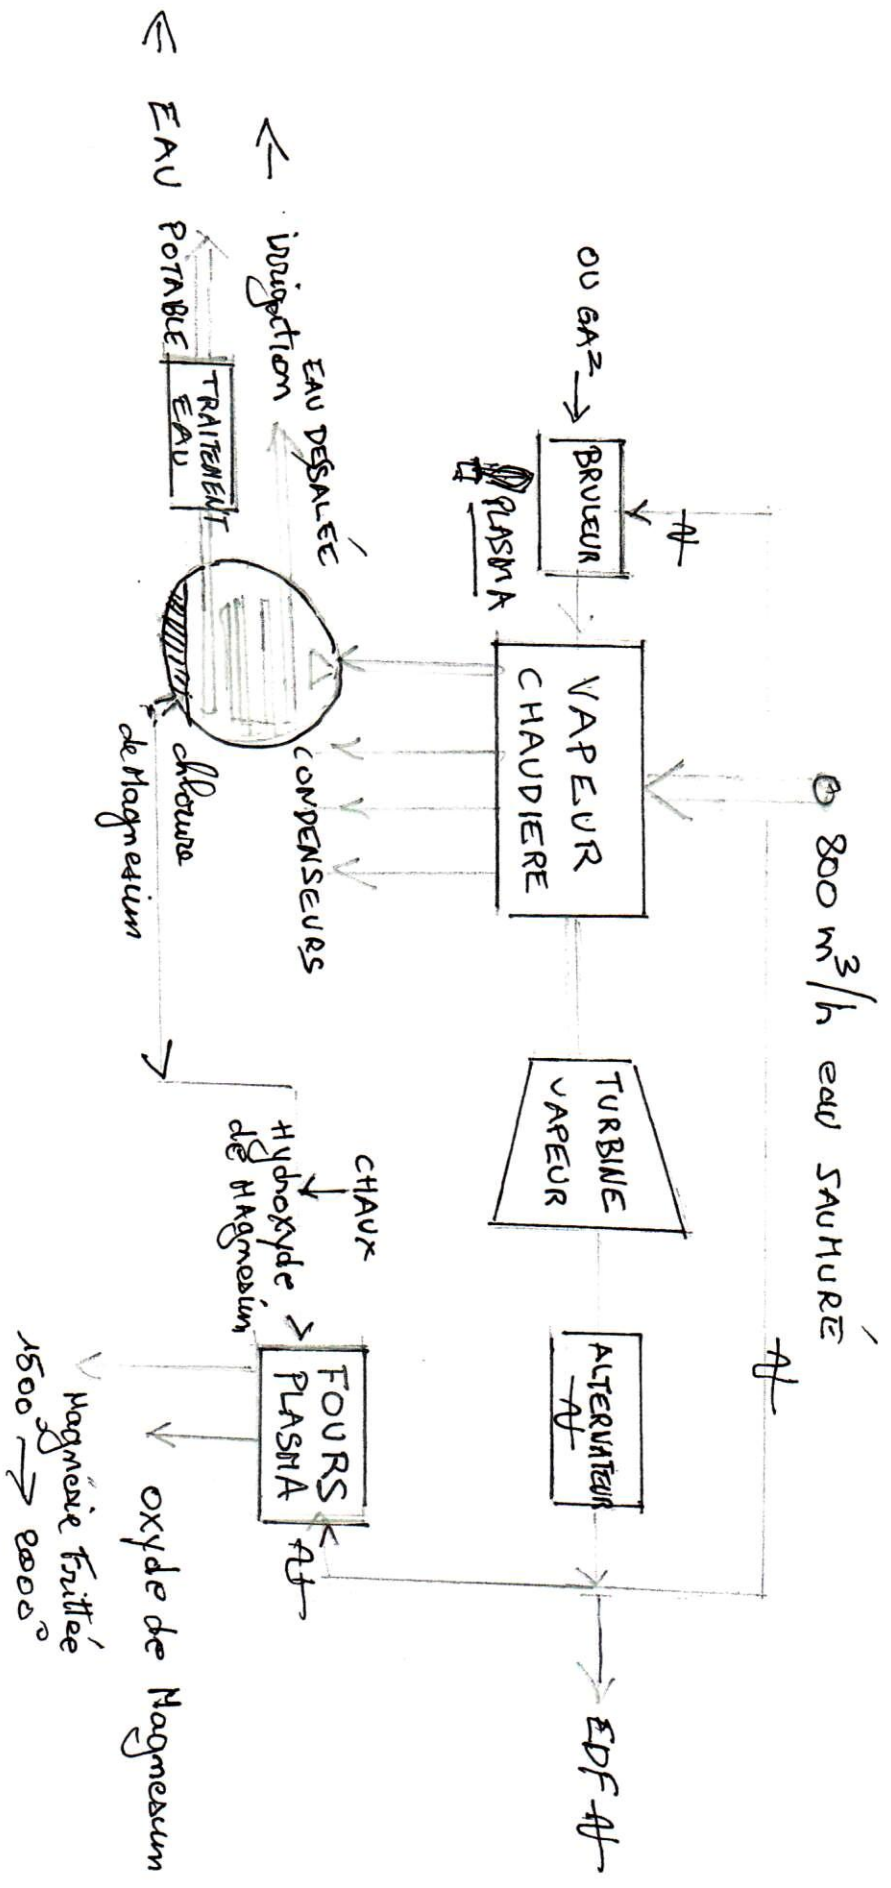 800 m³/h eau SAUMURÉ
OU GAZ
BRULEUR
PLASMA
VAPEUR
CHAUDIERE
TURBINE
VAPEUR
ALTERNATEUR
EDF
CONDENSEURS
EAU DESSALÉE
irrigation
TRAITEMENT
EAU
EAU POTABLE
chlorure
de Magnesium
CHAUX
Hydroxyde
de MAgnesium
FOURS
PLASMA
oxyde de Magnesium
Magnésie Frittée
1500° → 2000°